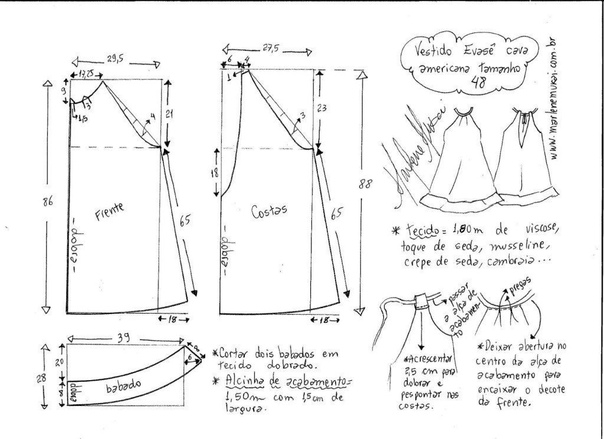 Vestido Evasê cava
americana tamanho
48
www.marlenemukai.com.br
Marlene Mukai
29,5
17,25
9
1,5
3
4
21
86
Frente
dobra
65
18
27,5
6
4
1
3
23
18
88
Costas
dobra
65
18
* tecido = 1,80m de viscose,
toque de seda, musseline,
crepe de seda, cambraia...
39
20
28
8
dobra
babado
6
*Cortar dois babados em
tecido dobrado.
* Alcinha de acabamento=
1,50m com 1,5cm de
largura.
passar
a alça de
acabamen-
to
pregas
*Acrescentar
2,5 cm para
dobrar e
pespontar nas
costas.
*Deixar abertura no
centro da alça de
acabamento para
encaixar o decote
da frente.